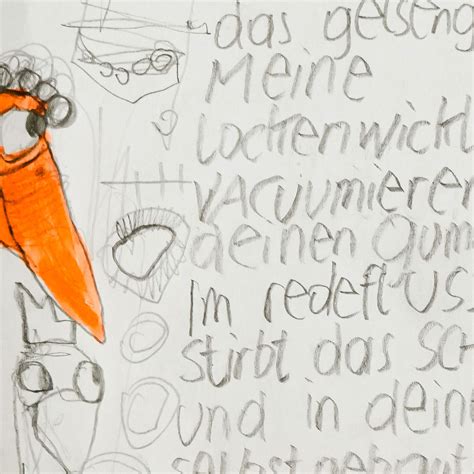 das gelseng
Meine
Lockenwickl
vacuumieren
deinen Gum
Im redeflus
stirbt das Sc
und in dein
selbst gebaut